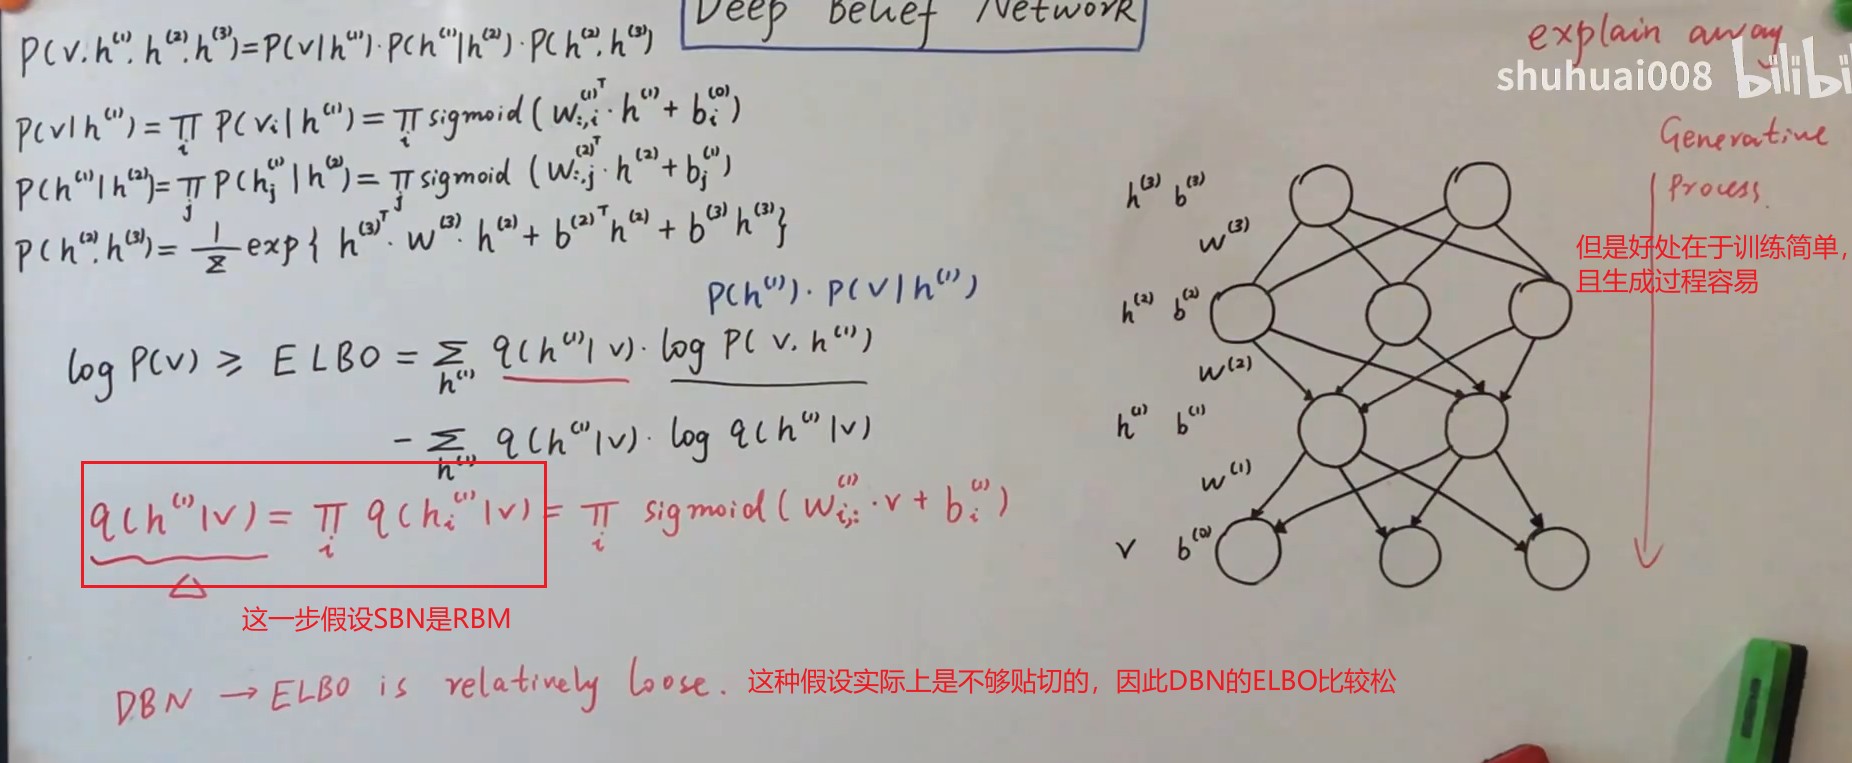 Deep Belief Network
P(v, h⁽¹⁾, h⁽²⁾, h⁽³⁾) = P(v|h⁽¹⁾) · P(h⁽¹⁾|h⁽²⁾) · P(h⁽²⁾, h⁽³⁾)
P(v|h⁽¹⁾) = ∏_i P(v_i|h⁽¹⁾) = ∏_i sigmoid(w_{:,i}^{(1)T} · h⁽¹⁾ + b_i⁽⁰⁾)
P(h⁽¹⁾|h⁽²⁾) = ∏_j P(h_j⁽¹⁾|h⁽²⁾) = ∏_j sigmoid(w_{:,j}^{(2)T} · h⁽²⁾ + b_j⁽¹⁾)
P(h⁽²⁾, h⁽³⁾) = 1/Z exp{h^{(3)T} · w⁽³⁾ · h⁽²⁾ + b^{(2)T} h⁽²⁾ + b⁽³⁾ h⁽³⁾}
P(h⁽¹⁾) · P(v|h⁽¹⁾)
log P(v) ≥ ELBO = ∑_{h⁽¹⁾} q(h⁽¹⁾|v) · log P(v, h⁽¹⁾)
- ∑_{h⁽¹⁾} q(h⁽¹⁾|v) · log q(h⁽¹⁾|v)
q(h⁽¹⁾|v) = ∏_i q(h_i⁽¹⁾|v) = ∏_i sigmoid(w_{i,:}⁽¹⁾ · v + b_i⁽¹⁾)
△
这一步假设SBN是RBM
DBN → ELBO is relatively loose.
这种假设实际上是不够贴切的，因此DBN的ELBO比较松
explain away
shuhuai008 bilibi
Generative
Process.
但是好处在于训练简单，
且生成过程容易
h⁽³⁾ b⁽³⁾
w⁽³⁾
h⁽²⁾ b⁽²⁾
w⁽²⁾
h⁽¹⁾ b⁽¹⁾
w⁽¹⁾
v b⁽⁰⁾